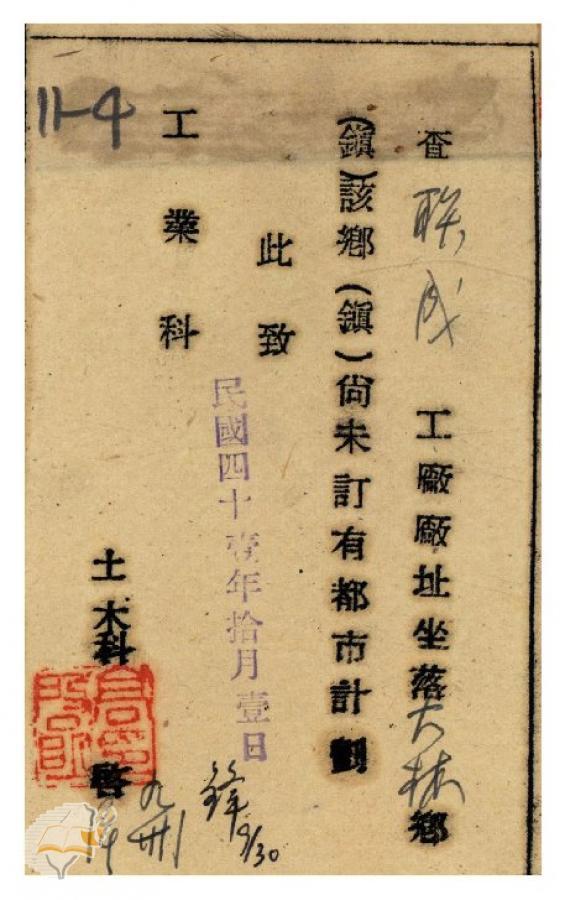 查 聯成 工廠廠址坐落大林鄉
(鎮)該鄉(鎮)尚未訂有都市計劃
此致
工業科
民國四十壹年拾月壹日
土木科 啓
鋒 9/30
11-4